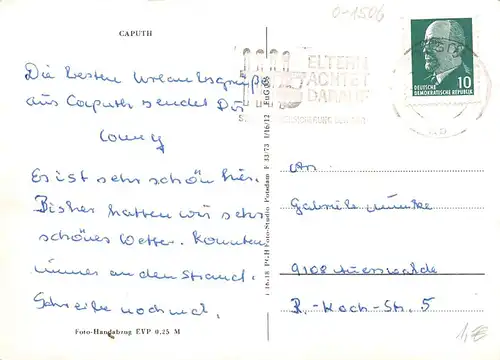 0-1506
CAPUTH
Die besten Urlaubsgrüße
aus Caputh sendet Dir
Conny
Es ist sehr schön hier.
Bisher hatten wir sehr
schönes Wetter. Konnten
immer an den Strand.
Schreibe noch mal.
Foto-Handabzug EVP 0,25 M
I 16 18 PGH Foto-Studio Potsdam F 33/73 I/16/12
ELTERN
ACHTET
DARAUF
10
DEUTSCHE
DEMOKRATISCHE REPUBLIK
An
Gabriele
9108 Auerswalde
R.-Koch-Str. 5
1,-€